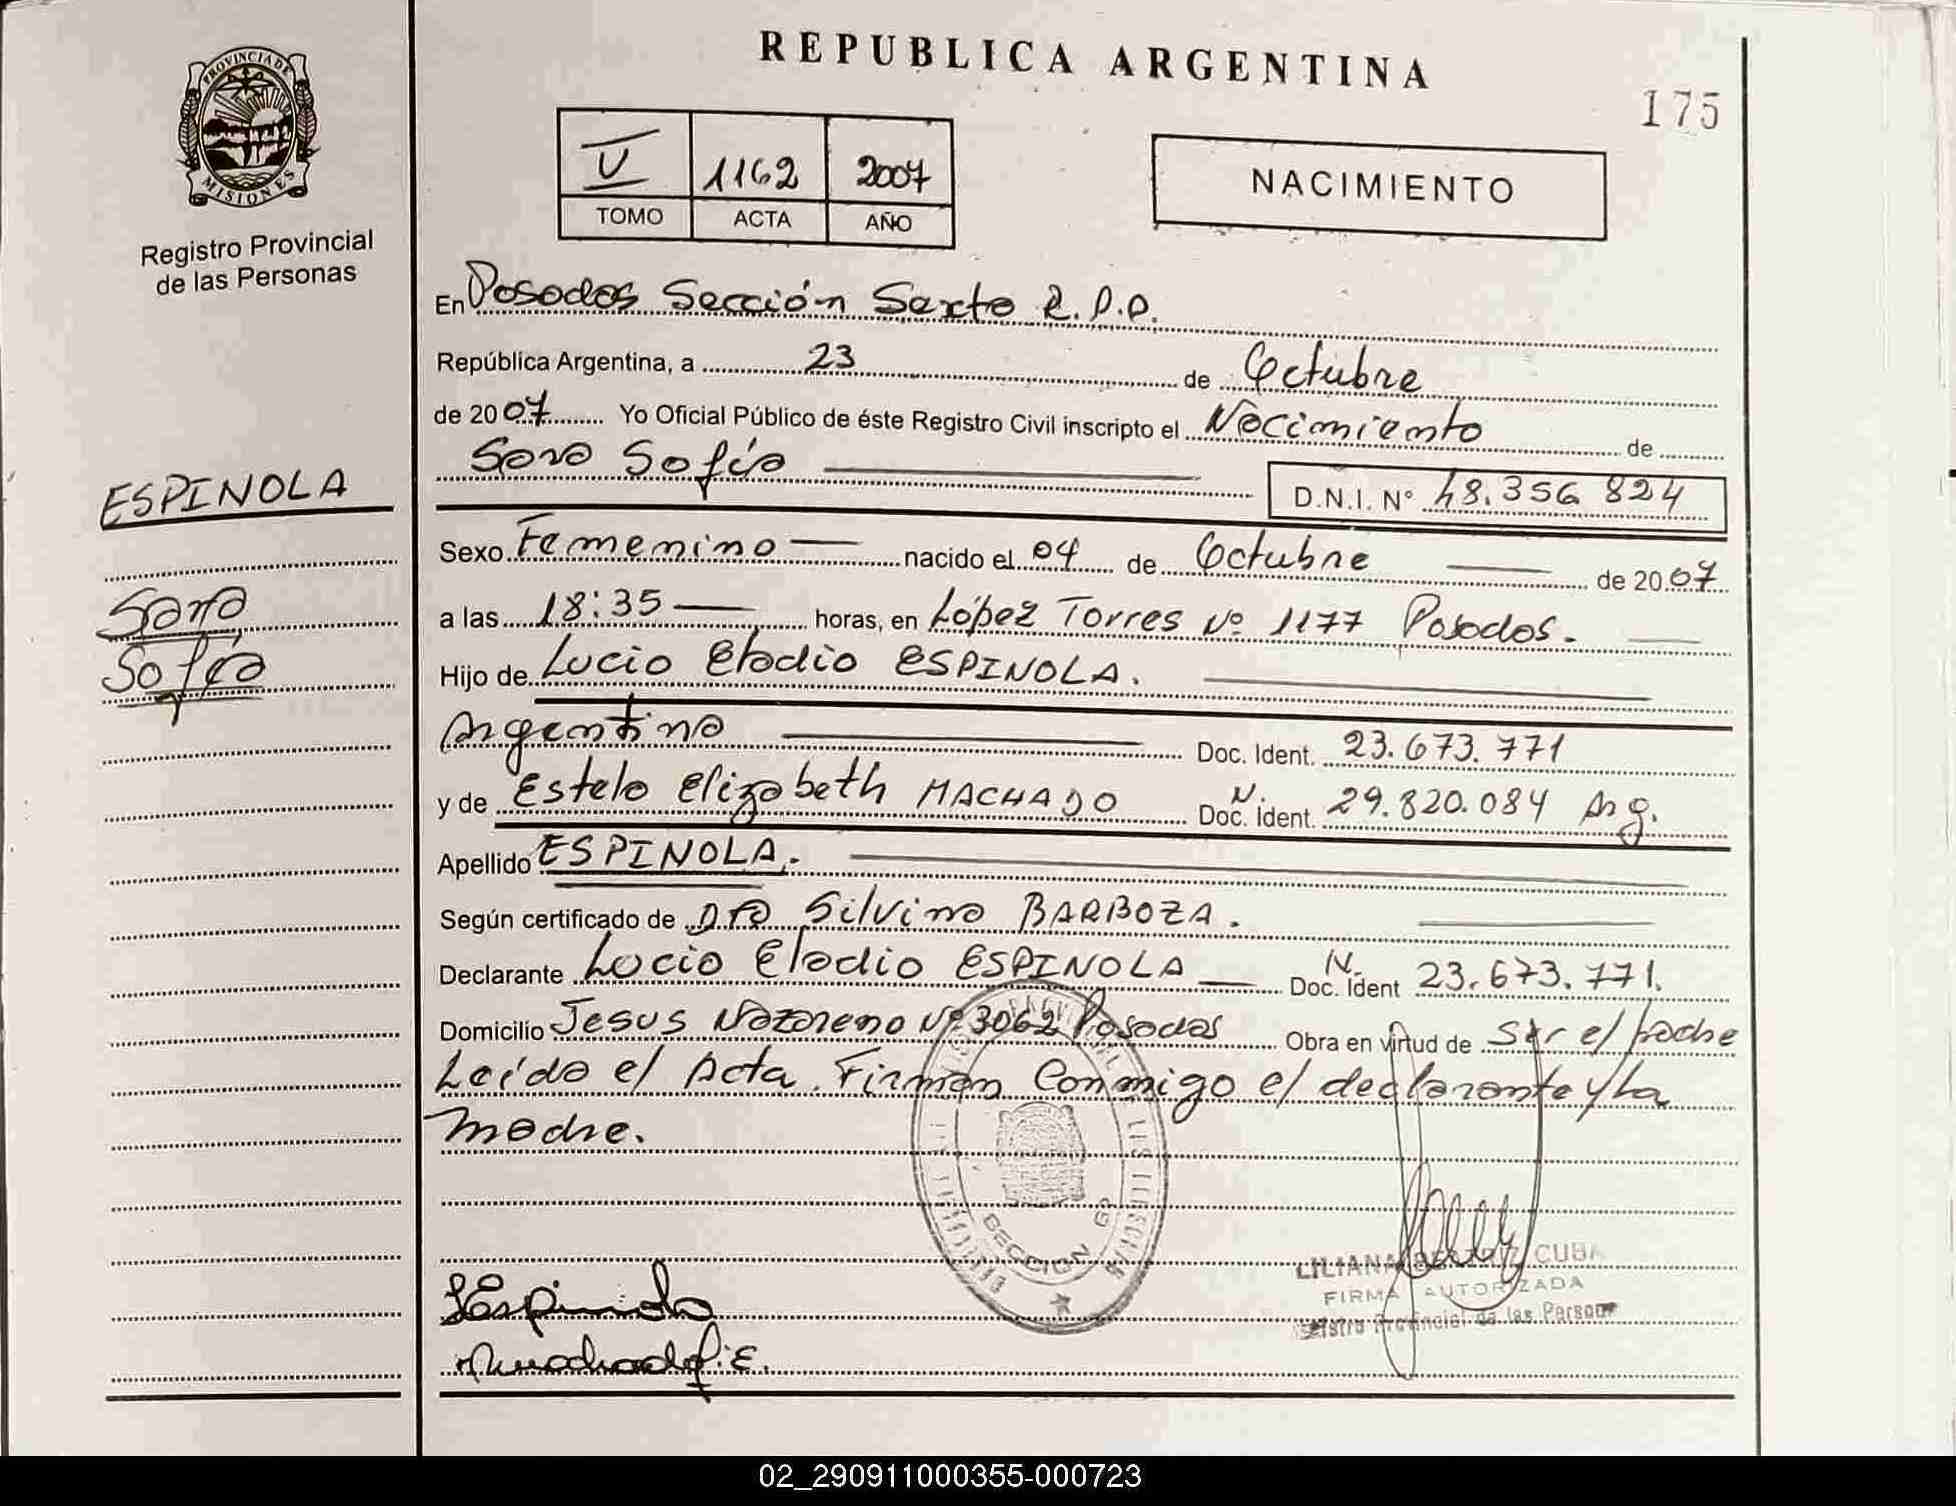 REPUBLICA ARGENTINA
175
PROVINCIA DE MISIONES
Registro Provincial
de las Personas
V 1162 2007
TOMO ACTA AÑO
NACIMIENTO
En Posadas Sección Sexta R.P.P.
República Argentina, a 23 de Octubre
de 2007 Yo Oficial Público de éste Registro Civil inscripto el Nacimiento de
Sara Sofía
D.N.I. N° 48.356 824
ESPINOLA
Sara
Sofía
Sexo Femenino nacido el 04 de Octubre de 2007
a las 18:35 horas, en López Torres Nº 1177 Posadas.
Hijo de Lucio Eladio ESPINOLA.
Argentino Doc. Ident. 23.673.771
y de Estela Elizabeth MACHADO N. Doc. Ident. 29.820.084 Arg.
Apellido ESPINOLA.
Según certificado de Silvina BARBOZA.
Declarante Lucio Eladio ESPINOLA N. Doc. Ident 23.673.771.
Domicilio Jesus Nazareno Nº 3062 Posadas Obra en virtud de ser el padre
Leída el Acta. Firman Conmigo el declarante y la
madre.
SECCION 6
LILIANA BEATRIZ CUBA
FIRMA AUTORIZADA
Provincial de las Person
02_290911000355-000723